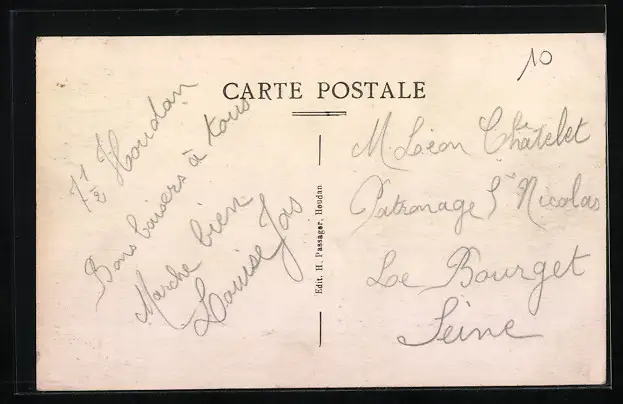 10
CARTE POSTALE
7 1/2 Houdan
Bons baisers à tous
Marche bien
Louise Jas
Edit. H. Passager, Houdan
M. Léon Châtelet
Patronage St Nicolas
Le Bourget
Seine